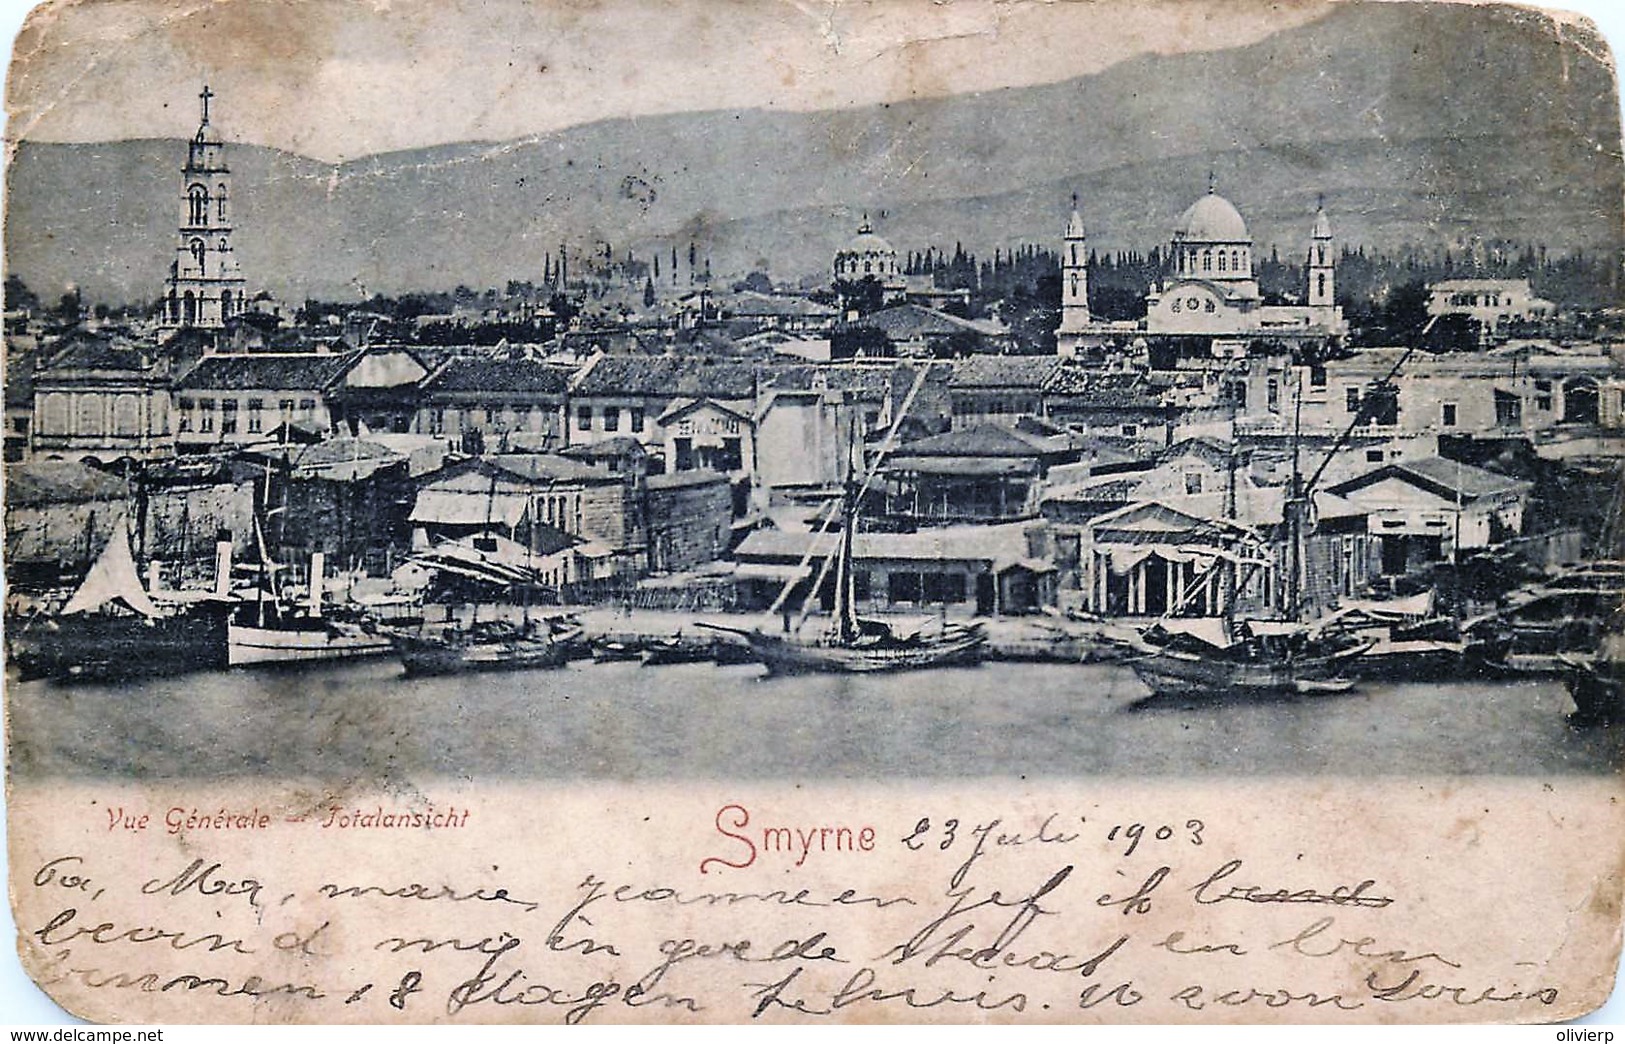 Vue Générale — Totalansicht
Smyrne 23 Juli 1903
Pa, Ma, marie, Jeanne en Jef ik
bevind mij in goede staat en ben
binnen 18 dagen tehuis. Uw zoon Louis
www.delcampe.net
olivierp